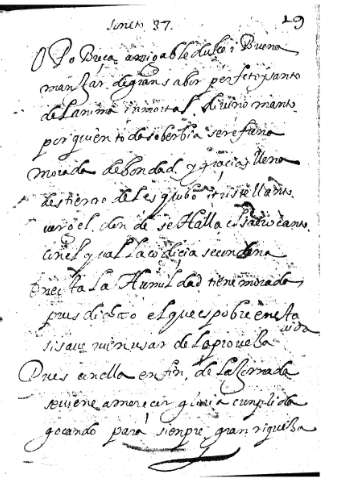 soneto 37. 29
O Pobreça amigable dulce i Buena
manjar de gran sabor perfeto y santo
de la anima inmortal divino manto
por quien toda soberbia se refrena
morada de bondad y gracias llena
destierro del
carcel, don de se Halla el sabio canto
con el qual la codicia se condena
En esta La Humildad tiene morada
pues dichoso el que es pobre en esta
vida
si save vien usar de la proueba
Pues en ella en fin, de la jornada
se viene a merecer gloria cumplida
gocando para siempre gran riqueba